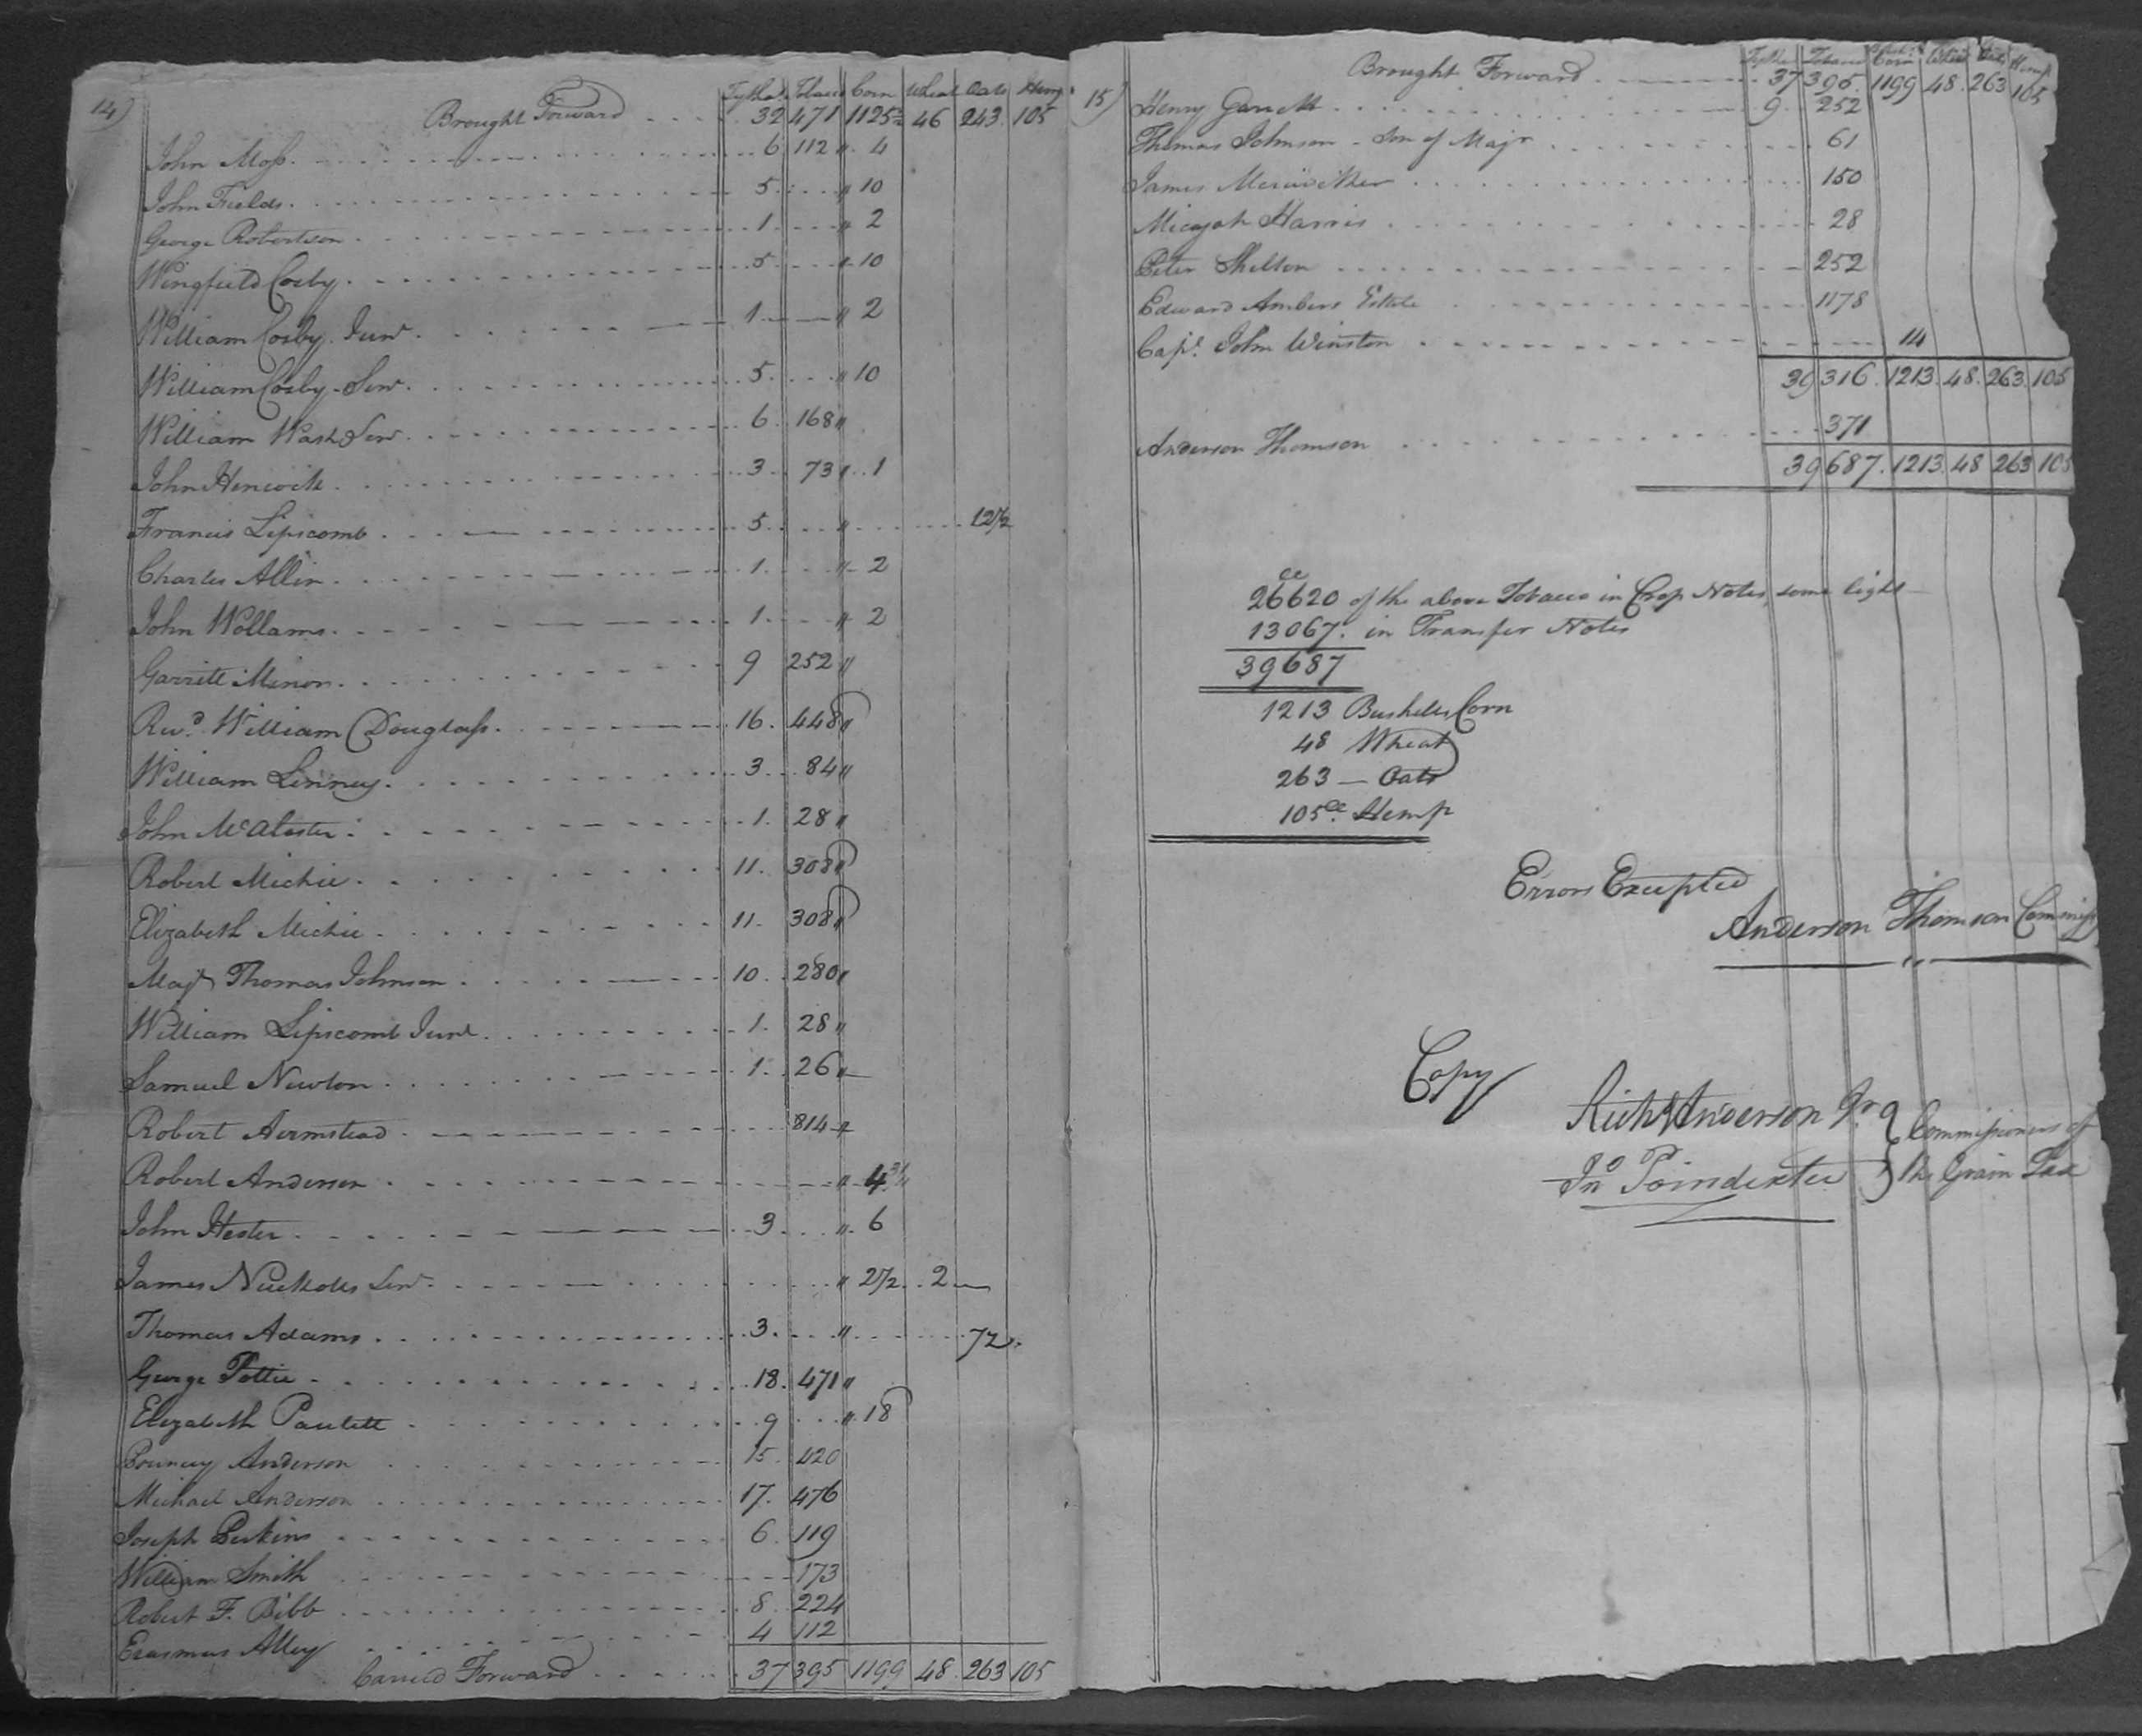 14)
Tytha Tobacco Corn Wheat Oats Hemp
Brought Forward 32 471 1125½ 46 243 105
John Moss 6 112 " 4
John Fields 5 " 10
George Robertson 1 " 2
Wingfield Cosby 5 " 10
William Cosby Junr 1 " 2
William Cosby Senr 5 " 10
William Wash Senr 6 168 "
John Hencock 3 73 " 1
Francis Lipscomb 5 " 12½
Charles Allin 1 " 2
John Wollams 1 " 2
Garritt Minor 9 252 "
Revd. William Douglass 16 448 "
William Linney 3 84 "
John McAlester 1 28 "
Robert Michie 11 308 "
Elizabeth Michie 11 308 "
Majr Thomas Johnson 10 280 "
William Lipscomb Junr 1 28 "
Samuel Newton 1 26 "
Robert Airmstead 814 "
Robert Anderson " 4¾
John Hester 3 " 6
James Nuckolls Senr " 2½ 2
Thomas Adams 3 " 7½
George Pottie 18 471 "
Elizabeth Paulett 9 " 18
Pouncey Anderson 15 420
Michael Anderson 17 476
Joseph Perkins 6 119
William Smith 173
Robert F. Bibb 8 224
Erasmus Alley 4 112
Carried Forward 37 395 1199 48 263 105
15)
Tytha Tobacco Corn Wheat Oats Hemp
Brought Forward 37 395 1199 48 263 105
Henry Garrett 9 252
Thomas Johnson - Son of Majr 61
James Meriwether 150
Micajah Harris 28
Peter Shelton 252
Edward Ambers Estate 1178
Capt. John Winston 14
39 316 1213 48 263 105
Anderson Thomson 371
39 687 1213 48 263 105
26620 of the above Tobacco in Crop Notes, some light
13067 in Transfer Notes
39687
1213 Bushells Corn
48 Wheat
263 — Oats
105 Hemp
Errors Excepted
Anderson Thomson Commissy
Copy
Richd Anderson Jr. } Commissioners of
Jno Poindexter } the Grain Tax